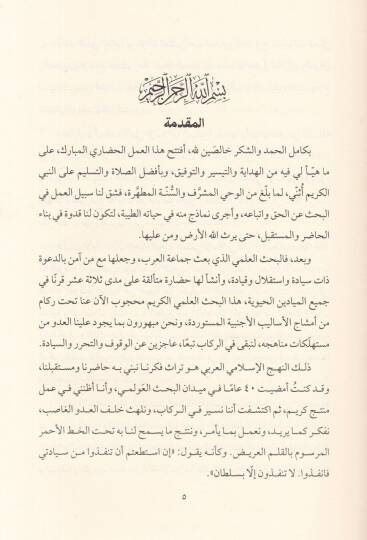 بسم الله الرحمن الرحيم
المقدمة
بكامل الحمد والشكر خالصَين لله، أفتتح هذا العمل الحضاري المبارك، على
ما هيّأ لي فيه من الهداية والتيسير والتوفيق، وبأفضل الصلاة والتسليم على النبي
الكريم أُثنّي، لما بلّغ من الوحي المشرَّف والسُّنّة المطهَّرة، فشق لنا سبيل العمل في
البحث عن الحق واتباعه، وأجرى نماذج منه في حياته الطيبة، لتكون لنا قدوة في بناء
الحاضر والمستقبل، حتى يرث الله الأرض ومن عليها.
وبعد، فالبحث العلمي الذي بعث جماعة العرب، وجعلها مع من آمن بالدعوة
ذات سيادة واستقلال وقيادة، وأنشأ لها حضارة متألقة على مدى ثلاثة عشر قرنًا في
جميع الميادين الحيوية، هذا البحث العلمي الكريم محجوب الآن عنا تحت ركام
من أمشاج الأساليب الأجنبية المستوردة، ونحن مبهورون بما يجود علينا العدو من
مستهلَكات مناهجه، لنبقى في الركاب تبعًا، عاجزين عن الوقوف والتحرر والسيادة.
ذلك النهج الإسلامي العربي هو تراث فكرنا نبني به حاضرنا ومستقبلنا،
وقد كنتُ أمضيت ٤٠ عامًا في ميدان البحث العَولمي، وأنا أظنني في عمل
منتج كريم، ثم اكتشفت أننا نسير في الركاب، ونلهث خلف العدو الغاصب،
نفكر كما يريد، ونعمل بما يأمر، وننتج ما يسمح لنا به تحت الخط الأحمر
المرسوم بالقلم العريض. وكأنه يقول: «إن استطعتم أن تنفذوا من سيادتي
فانفذوا. لا تنفذون إلّا بسلطان».
٥